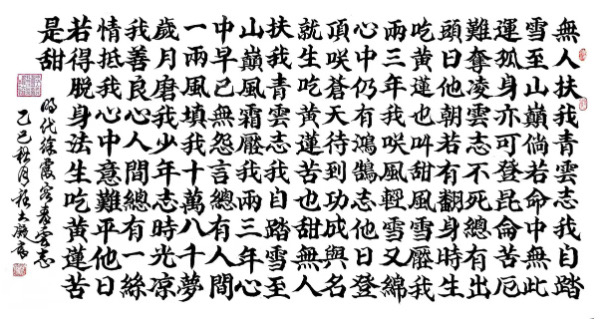 無人扶我青雲志我自踏
雪至山巔倘若命中無此
運孤身亦可登昆侖苦厄
難奪凌雲志不死總有出
頭日他朝若有翻身時生
吃黃蓮也叫甜風雪壓我
兩三年我咲風輕雪又綿
心中仍有鴻鵠志他日登
頂咲蒼天待到功成與名
就生吃黃蓮苦也甜無人
扶我青雲志我自踏雪至
山巔風霜壓我兩三年心
中早已無怨言總有人間
一兩風填我十萬八千夢
歲月磨我少年志時光涼
我善良心人間總有一絲
情抵我心中意難平他日
若得脫身法生吃黃蓮苦
是甜
明代徐霞客青雲志
乙巳秋月